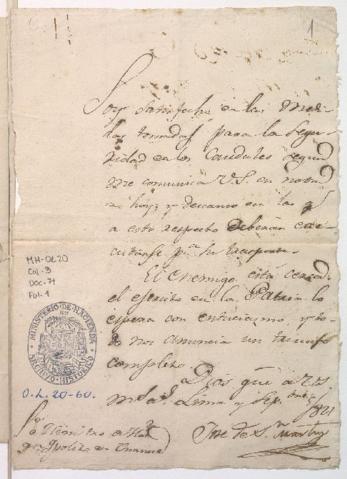 1
Soy satisfecho en las medi-
das tomadas para la segu-
ridad en los Caudales segun
me comunica V.S. en nota
de hoy, y descanso en las qe
a este respecto deberán exe-
cutarse pa su
El enemigo está cerca
el ejercito de la Patria lo
espera con entuciasmo, y to-
do nos anuncia un triunfo
completo.
Dios gue a V.S.
ms as Lima y Sepbre 1821
Jose de Sn Martin
Sor
Hipolito Unanue
MH-OL20
Caj-3
Doc-71
Fol-1
MINISTERIO DE HACIENDA
ARCHIVO HISTORICO
O.L. 20-60.